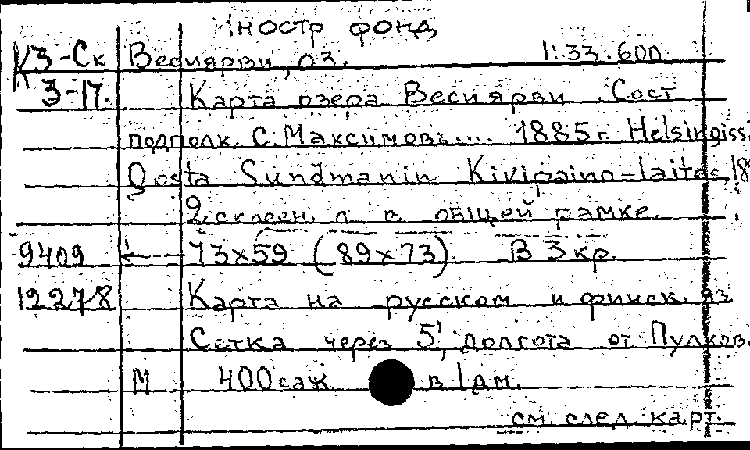 Иностр фонд
К3-Ск Весиярви, оз. 1:33.600
3-П. Карта озера Весиярви. Сост
подполк. С. Максимовъ.... 1885 г. Helsingissä
Gösta Sundmanin Kivipaino-laitos, 18
2 склеен. л. в общей рамке.
9409 ← 73×59 (89×73). В 3 кр.
12278 Карта на русском и финск. яз
Сетка через 5', долгота от Пулков.
М 400 саж в 1 дм.
см. след. карт.